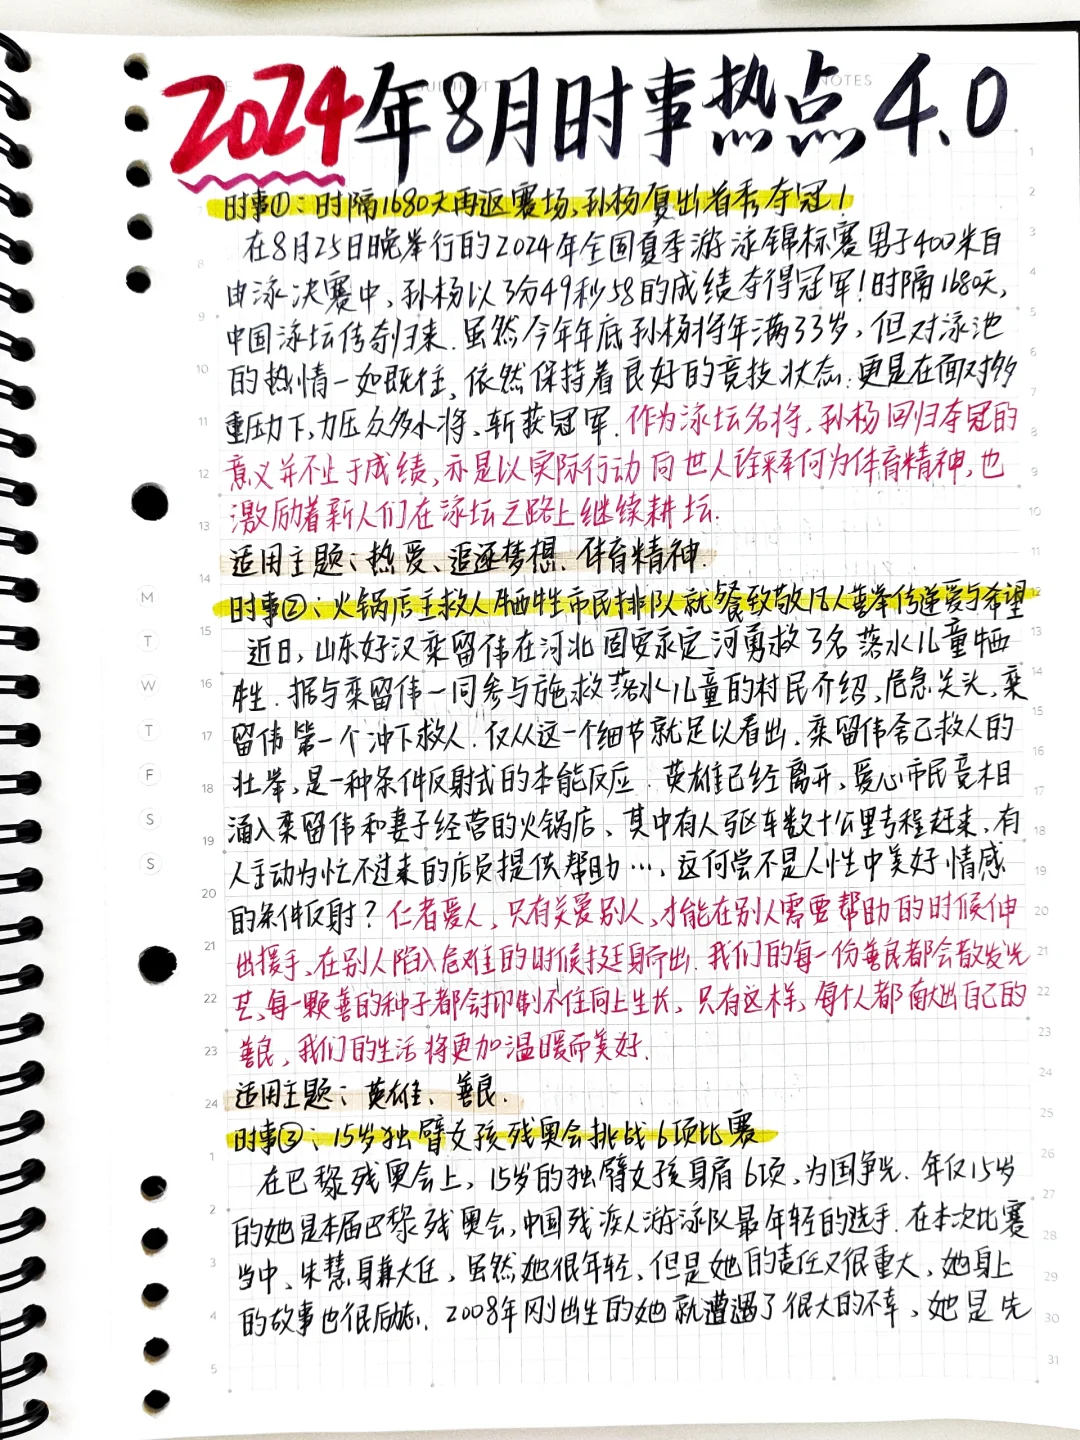 2024年8月时事热点4.0
NOTES
时事①:时隔1680天再返赛场,孙杨复出首秀夺冠!
在8月25日晚举行的2024年全国夏季游泳锦标赛男子400米自
由泳决赛中,孙杨以3分49秒58的成绩夺得冠军!时隔1680天,
中国泳坛传奇归来.虽然今年年底孙杨将年满33岁,但对泳池
的热情一如既往,依然保持着良好的竞技状态.更是在面对多
重压力下,力压众多小将、斩获冠军.作为泳坛名将,孙杨回归夺冠的
意义并不止于成绩,亦是以实际行动向世人诠释何为体育精神,也
激励着新人们在泳坛之路上继续耕坛.
适用主题:热爱、追逐梦想、体育精神.
时事②:火锅店主救人牺牲市民排队就餐致敬凡人善举传递爱与希望
近日,山东好汉栾留伟在河北固安永定河勇救3名落水儿童牺
牲.据与栾留伟一同参与施救落水儿童的村民介绍,危急关头,栾
留伟第一个冲下救人.仅从这一个细节就足以看出,栾留伟舍己救人的
壮举,是一种条件反射式的本能反应.英雄已经离开,爱心市民竞相
涌入栾留伟和妻子经营的火锅店、其中有人驱车数十公里专程赶来、有
人主动为忙不过来的店员提供帮助…,这何尝不是人性中美好情感
的条件反射?仁者爱人,只有关爱别人,才能在别人需要帮助的时候伸
出援手,在别人陷入危难的时候挺身而出.我们的每一份善良都会散发光
芒,每一颗善的种子都会抑制不住向上生长,只有这样,每个人都献出自己的
善良,我们的生活将更加温暖而美好.
适用主题:英雄、善良.
时事③:15岁独臂女孩残奥会挑战6项比赛
在巴黎残奥会上,15岁的独臂女孩身肩6项,为国争光.年仅15岁
的她是本届巴黎残奥会,中国残疾人游泳队最年轻的选手.在本次比赛
当中,朱慧身兼大任,虽然她很年轻,但是她的责任又很重大,她身上
的故事也很励志.2008年刚出生的她就遭遇了很大的不幸,她是先
M
T
W
T
F
S
S